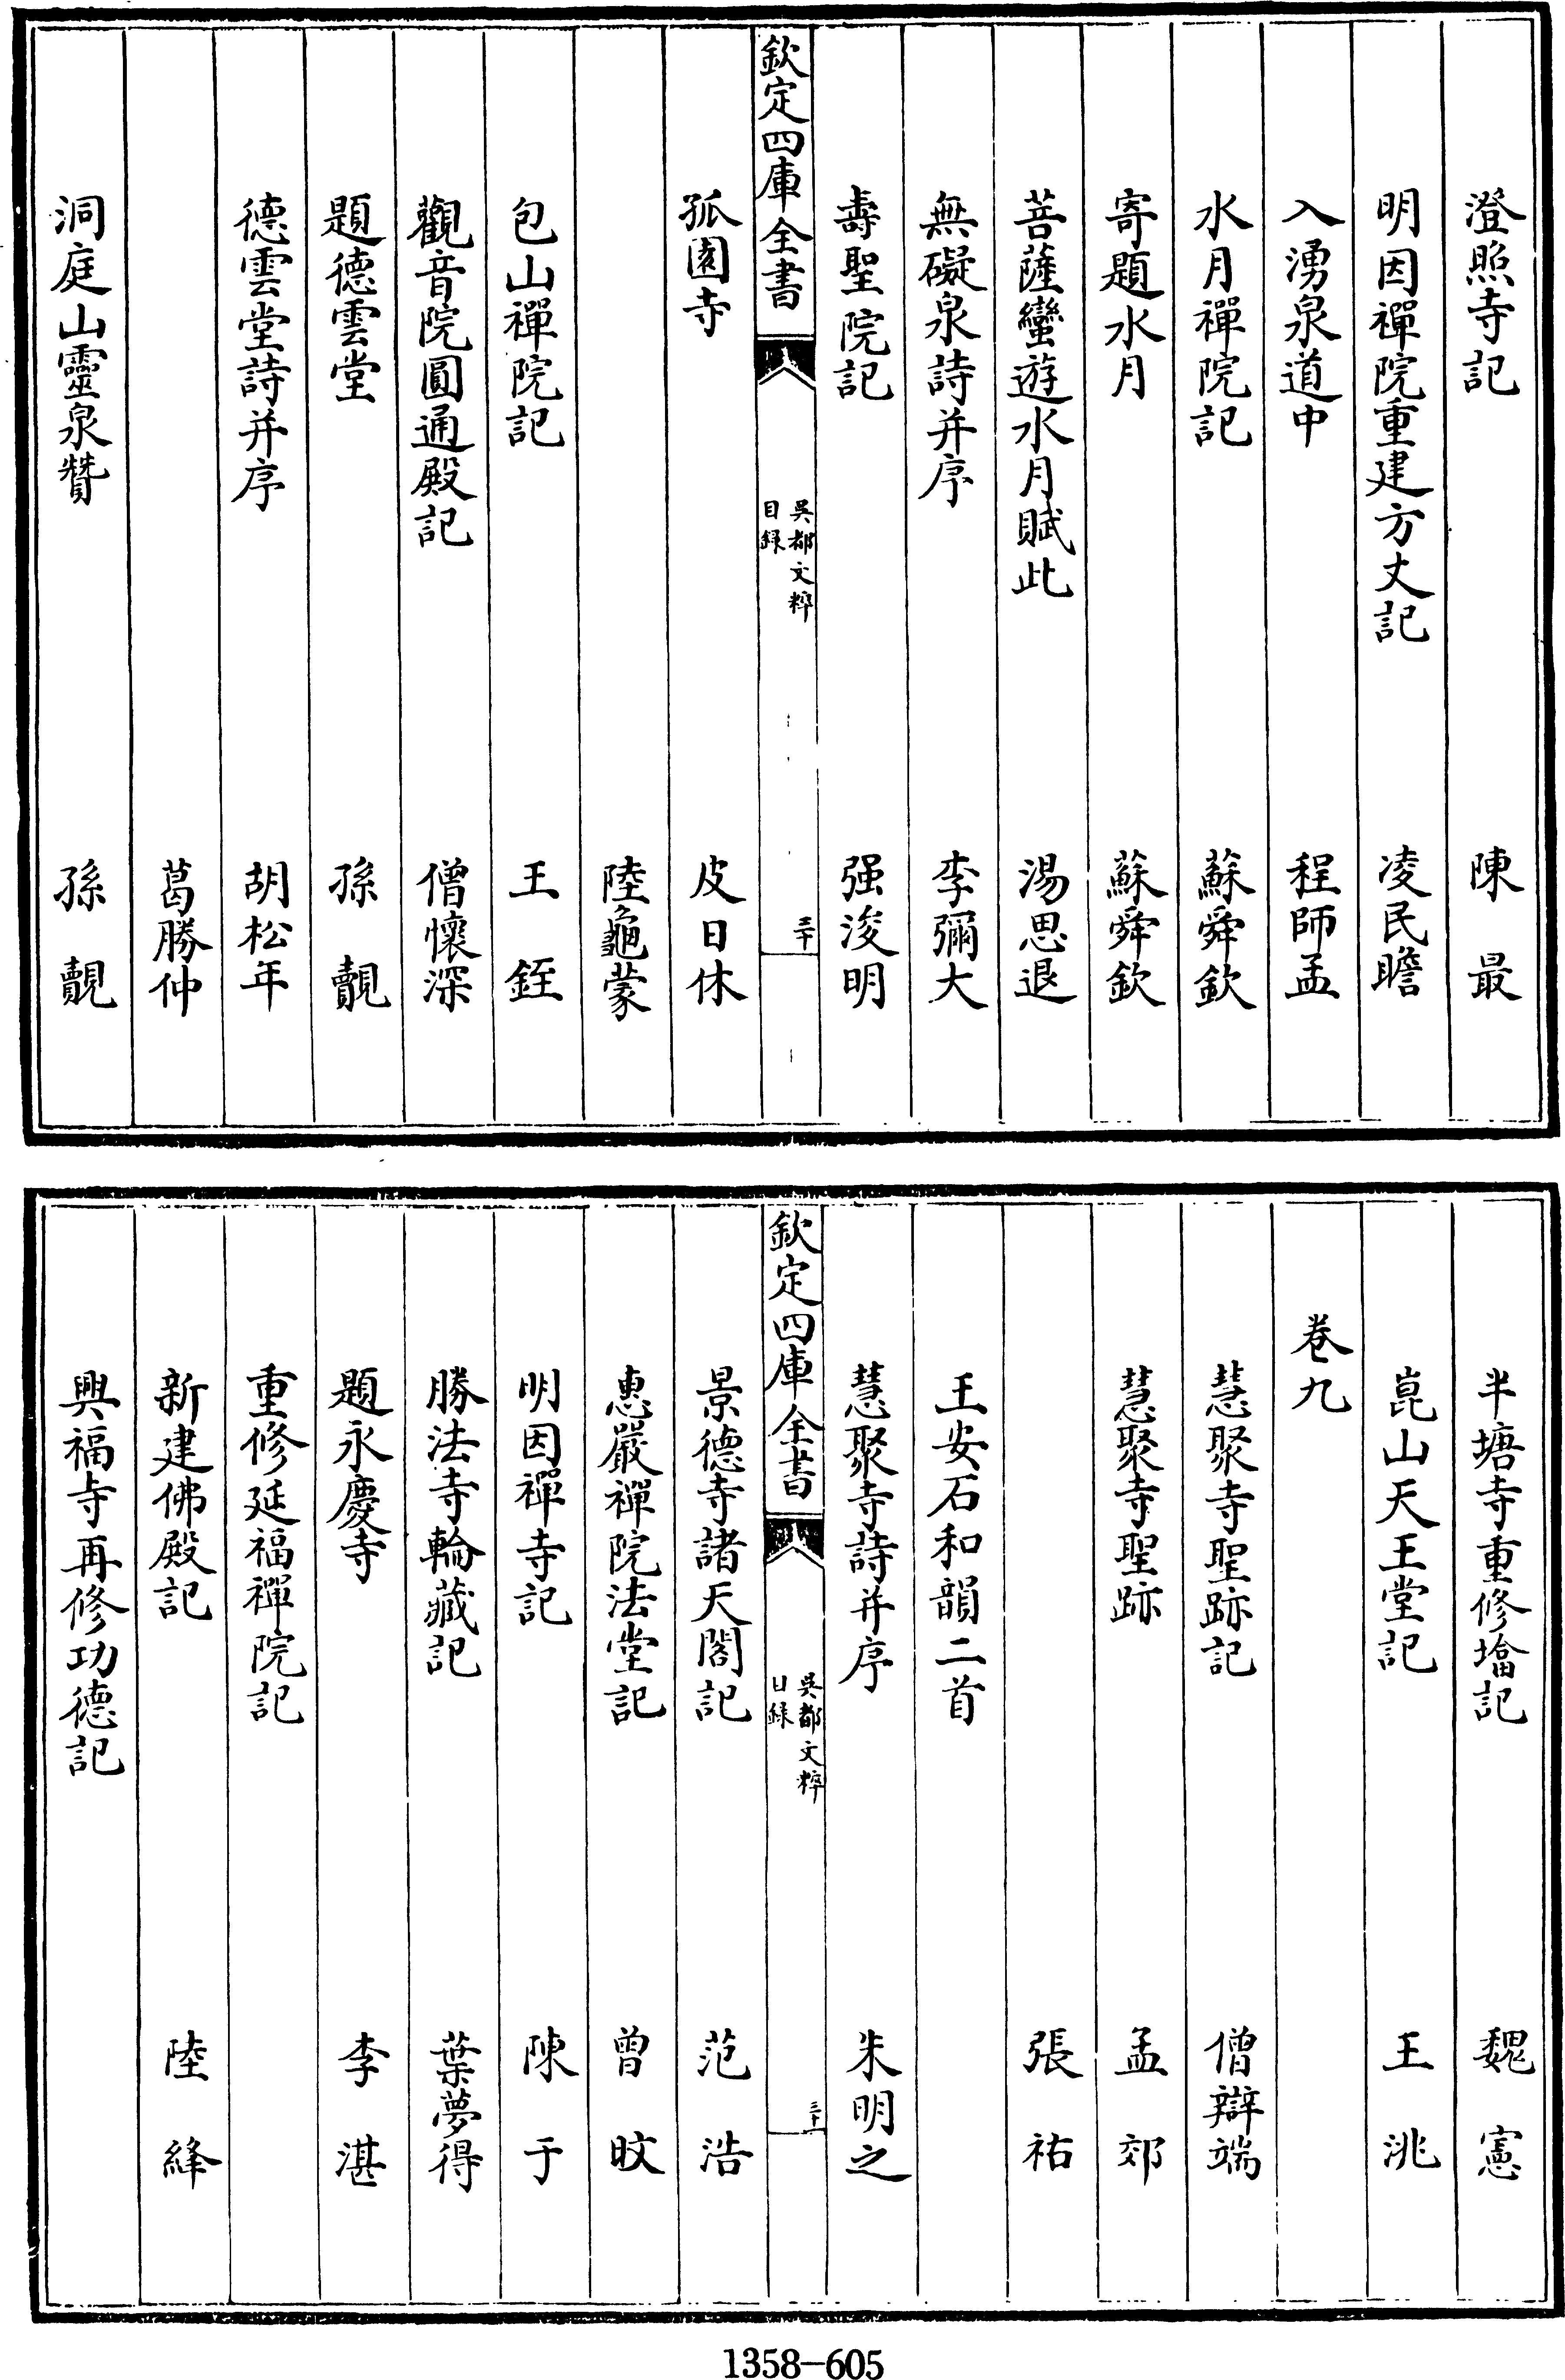 澄照寺記 陳最
明因禪院重建方丈記 凌民瞻
入湧泉道中 程師孟
水月禪院記 蘇舜欽
寄題水月 蘇舜欽
菩薩蠻遊水月賦此 湯思退
無礙泉詩并序 李彌大
壽聖院記 强浚明
欽定四庫全書 吳都文粹目録 三十
孤園寺 皮日休
陸龜蒙
包山禪院記 王銍
觀音院圓通殿記 僧懷深
題德雲堂 孫覿
德雲堂詩并序 胡松年
葛勝仲
洞庭山靈泉贊 孫覿
半塘寺重修塔記 魏憲
崑山天王堂記 王洮
卷九
慧聚寺聖跡記 僧辯端
慧聚寺聖跡 孟郊
張祐
王安石和韻二首
慧聚寺詩并序 朱明之
欽定四庫全書 吳都文粹目録 三十一
景德寺諸天閣記 范浩
惠嚴禪院法堂記 曾旼
明因禪寺記 陳于
勝法寺輪藏記 葉夢得
題永慶寺 李湛
重修延福禪院記
新建佛殿記 陸絳
興福寺再修功德記
1358-605